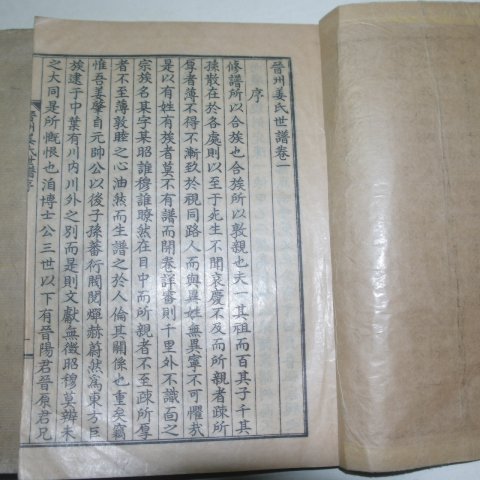 晉州姜氏世譜卷一
序
修譜所以合族也合族所以敦親也夫一其祖而百其子千其
孫散在於各處則以至于死生不聞哀慶不及而所親者疎所
厚者薄不得不漸致於視同路人而與異姓無異寧不可懼哉
是以有姓有族者莫不有譜而開卷詳審則千里外不識面之
宗族名某字某昭誰穆誰瞭然在目中而所親者不至疎所厚
者不至薄敦睦之心油然而生譜之於人倫其關係也重矣竊
惟吾姜肇自元帥公以後子孫蕃衍閥閱燀赫蔚然爲東方巨
族逮于中葉有川內川外之別而是則文獻無徵昭穆莫辨未
之大同是所慨恨也洎博士公三世以下有晉陽君晉原君兄
晉州姜氏世譜序